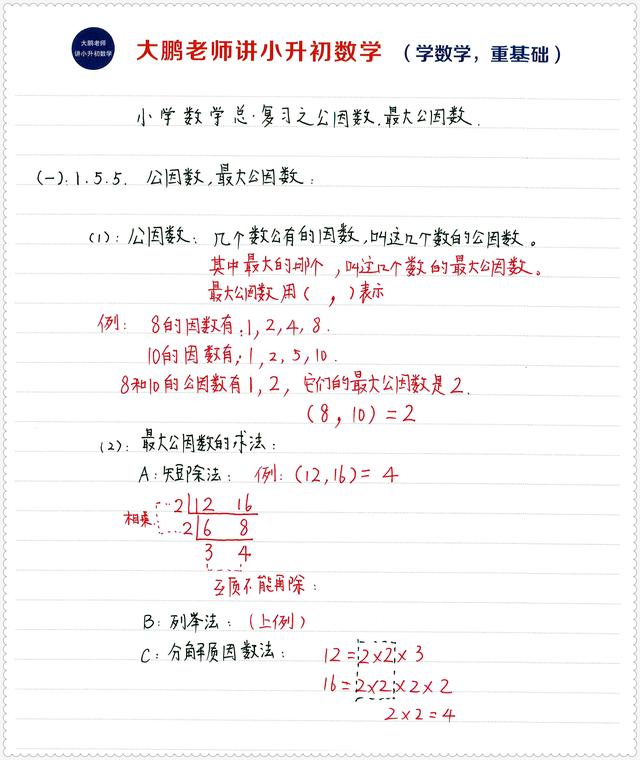 大鹏老师
讲小升初数学
大鹏老师讲小升初数学 (学数学,重基础)
小学数学总·复习之公因数.最大公因数.
(一):1.5.5. 公因数,最大公因数:
(1):公因数: 几个数公有的因数,叫这几个数的公因数。
其中最大的那个,叫这几个数的最大公因数。
最大公因数用( , )表示
例: 8的因数有:1,2,4,8.
10的因数有:1,2,5,10.
8和10的公因数有1,2,它们的最大公因数是2.
(8,10)=2
(2):最大公因数的求法:
A:短除法: 例:(12,16)=4
2 12 16
相乘 2 6 8
3 4
互质不能再除:
B:列举法:(上例)
C:分解质因数法: 12=2×2×3
16=2×2×2×2
2×2=4